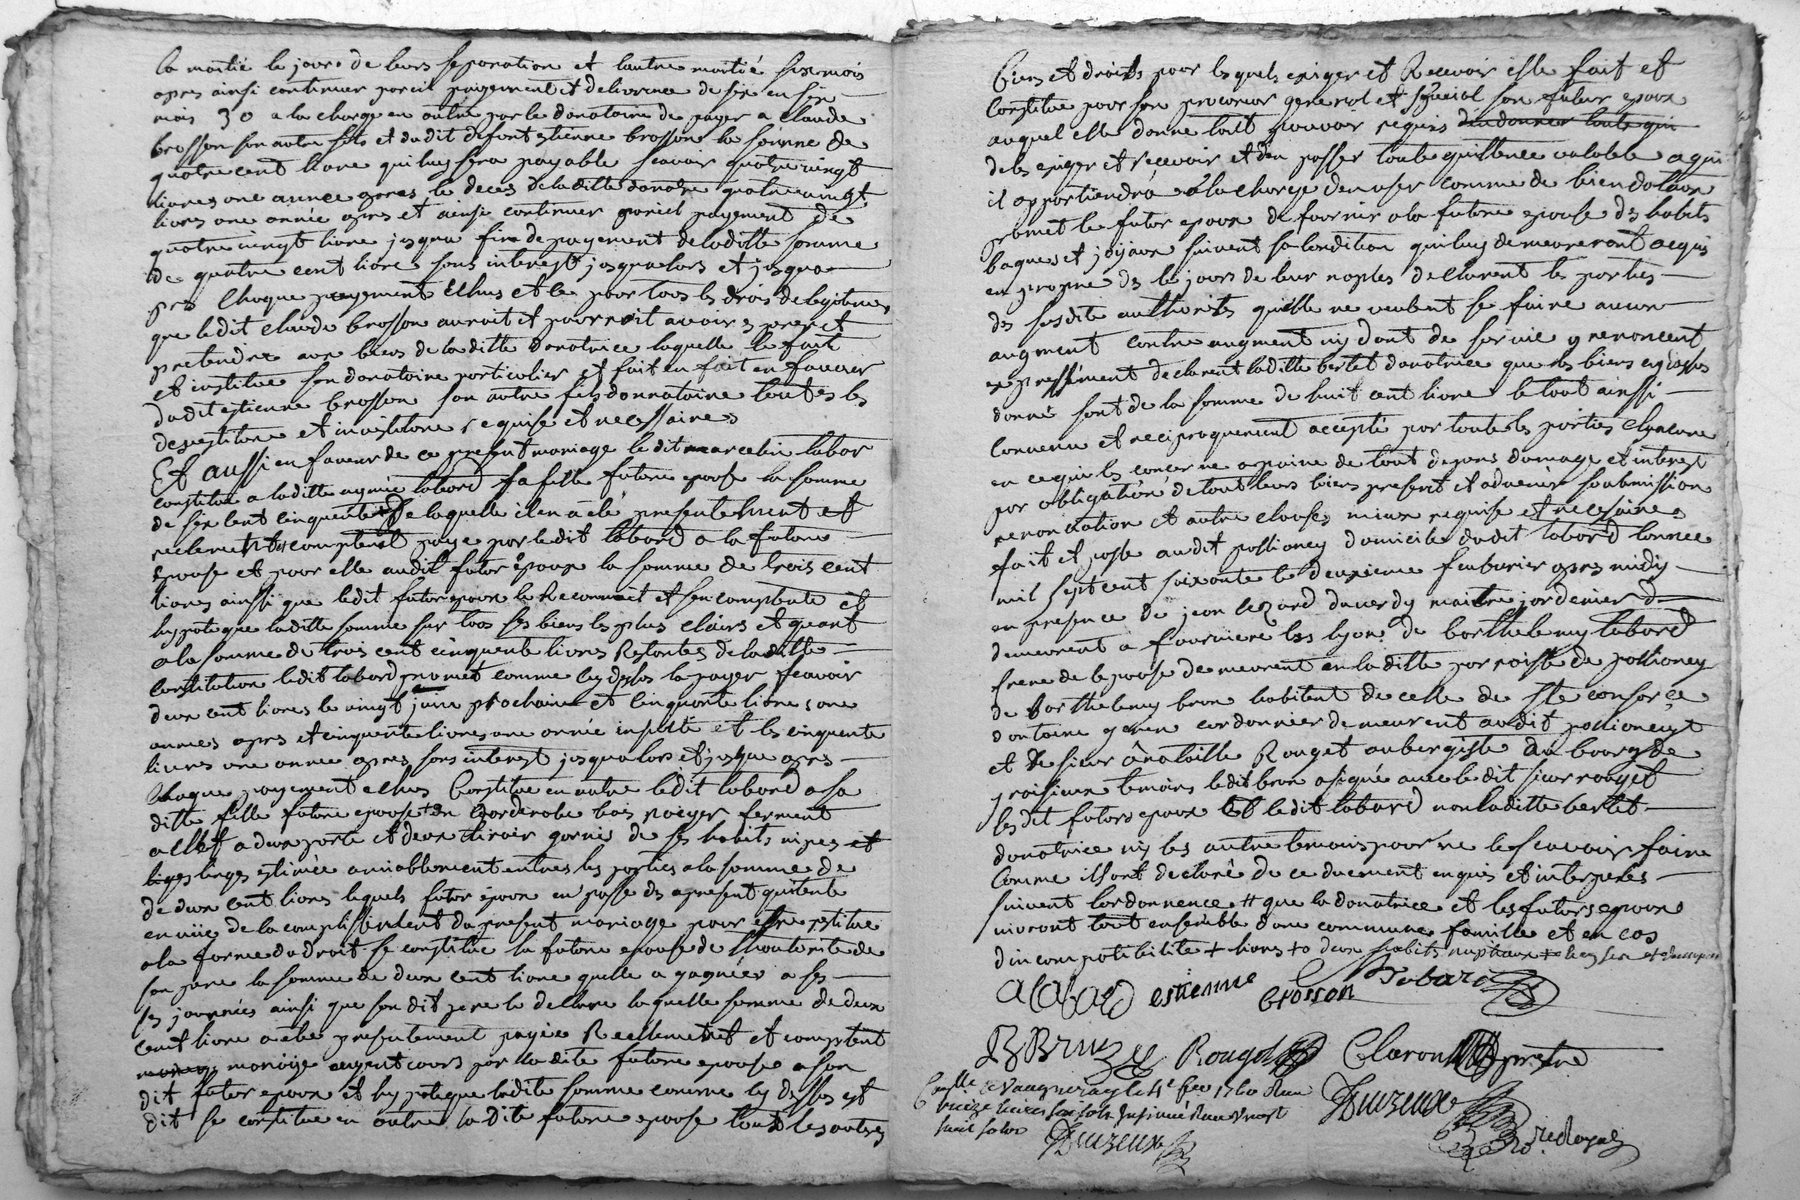 la moitié le jour de leurs separation et lautre moitié six mois
apres ainsi continuer pareil payement et delivrance de six en six
mois 30 a la charge en outre par le donatoire de payer a Claude
brosson son autre fils et dudit defont estienne brosson la somme de
quatre cent livre qui luy sera payable scavoir quatre vingt
livres une annee apres le deces de laditte donatrice quatre vingt
livres une année apres et ainsi continuer pareil payement de
quatre vingt livre jusqua fin de payement de laditte somme
de quatre cent livre sans interest jusqualors et jusqua
pres chaque payement echus et ce pour tous les drois de legitimes
que ledit Claude brosson auroit et pourroit avoir esperer et
pretendre aux biens de laditte donatrice laquelle le fait
et institue son donatoire particulier et fait en fait en faveur
dudit estienne brosson son autre fils donnatoire toutes les
desvestiture et invistiture requise et necessaires
Et aussi en faveur de ce present mariage ledit marcelin labor
constitue a laditte aymée labord sa fille future epouse la somme
de six cent cinquante de laquelle il en a été presentement et
reelement comptent payé par ledit labord a la future
epouse et pour elle audit futur epoux la somme de trois cent
livres ainsi que ledit futur epoux le reconnoit et sen contente et
hypoteque laditte somme sur tous ses biens les plus clairs et quant
a la somme de trois cent cinquante livres restantes de laditte
constitution ledit labord promet comme cy dessus la payer scavoir
deux cent livres le vingt juin prochain et cinquante livres une
annees apres et cinquente livres une année ensuitte et les cinquente
livres une annee apres sans interest jusqualors et jusque apres
chaque payement echus Constitue en outre ledit labord a sa
ditte fille future epouse un garderobe bois noyer ferment
a clef a deux porte et deux tiroir garnie de ses habits nipes et
linges estimée amiablement entres les parties a la somme de
de deux cent livres lequels futur epoux en passe des apresent quitence
en viie de la complissement du present mariage pour estre restitue
a la forme du droit se constitue la future epouse de lhautorité de
son pere la somme de deux cent livre quelle a gagnées a ses
ses journées ainsi que son dit pere le declare laquelle somme de deux
cent livre a ete presentement payée reellement et comptent
mariage argent cours par la dite future epouse a son
dit futur epoux et hypoteque ladite somme comme cy dessus est
dit se constitue en outre la dite future epouse tous les autres
biens et droits pour lesquels exiger et recevoir elle fait et
constitue pour son procureur general et special son futur epoux
auquel elle donne tout pouvoir requis
de les exiger et recevoir et den passer toute quittence valable a qui
il appartiendra a la charge den user comme de bien dotaux
promet le futur epoux de fournir a la future epouse des habits
bagues et joyaux suivent sa condition qui luy demeureront acquis
en propre des le jours de leur noples declarent les parties
des susdite authorités quelle ne veulent se faire aucun
augment contre augment ny dont de survie y renoncent
expressément declarent laditte berlet donatrice que les biens cy dessus
donné sont de la somme de huit cent livre le tout ainssi
convenu et reciproquement accepté par toute les parties chacune
en ce qui les concerne a paine de tout depans domage et interest
par obligation de tout leurs biens present et advenir soubmission
renontiation et autre clauses mieux requise et necessaires
fait et passé audit pollioney domicile dudit labord lannee
mil sept cent soixante le deuxieme feubvrier apres midy
en presence de jean lezard duverdy maitre jardenier
demeurent a fourviere les lyon de barthelemy labord
frere de lepouse demeurent en laditte parroisse de pollioney
de barthelemy brun habitent de celle de ste consorce
dantoine geren cordonnier demeurent audit pollioneyt
et de sieur anatoille Rouget aubergiste du bourg de
vaisieux temoins ledit brun a signé avec ledit sieur rouget
lesdit futurs epoux et ledit labord non laditte berlet
donatrice ny les autre temoins pour ne le scavoir faire
comme ils ont declaré de ce duement enquis et interpeles
suivent lordonnence # que la donatrice et les futurs epoux
vivront tout ensemble dune commune famille et en cas
dincompatibilite + livres + o deux habits nuptiaux
alabord estienne brosson Labord
B Brun Rouget Claron prestre
Conllé a Vaugneray le 4e fev 1760 Reçu
treize livres six sols Insinué Reçu Vingt
huit sols
Duzeux
Duzeux